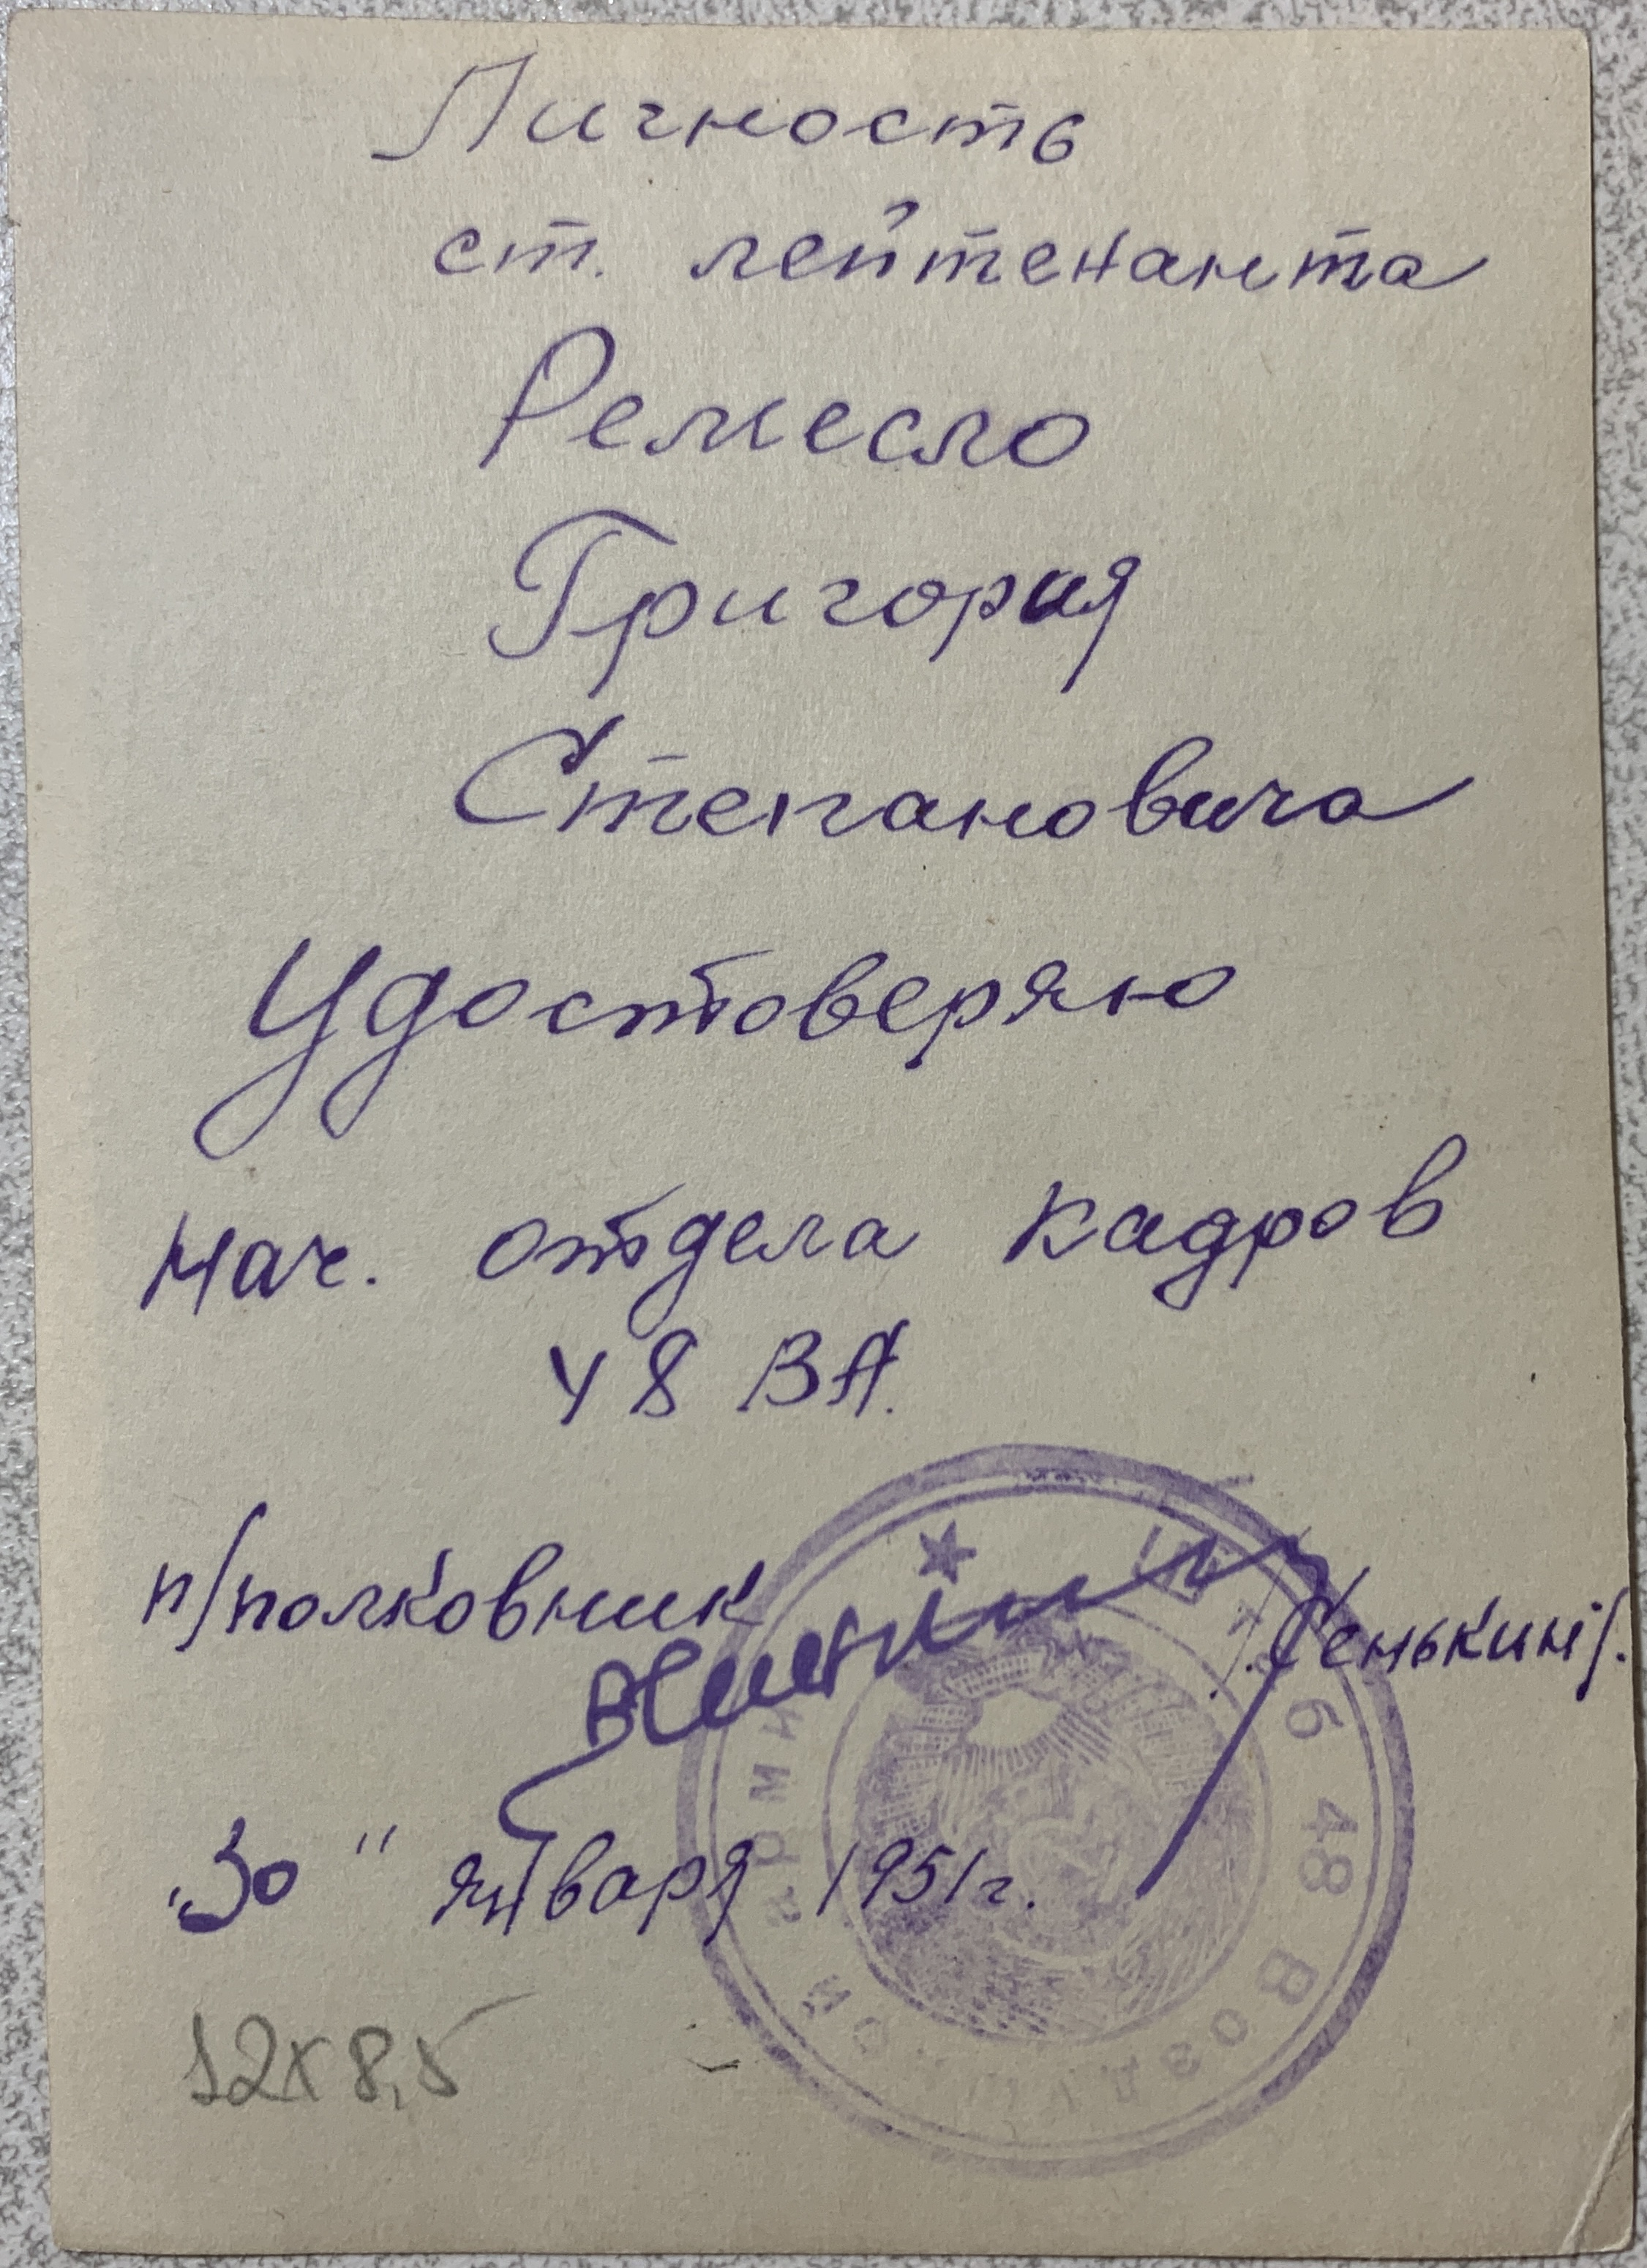 Личность
ст. лейтенанта
Ремесло
Григория
Степановича
Удостоверяю
Нач. отдела кадров
48 ВА.
п/полковник
/Сенькин/.
"30" января 1951 г.
12х8,5
48 ВОЗД